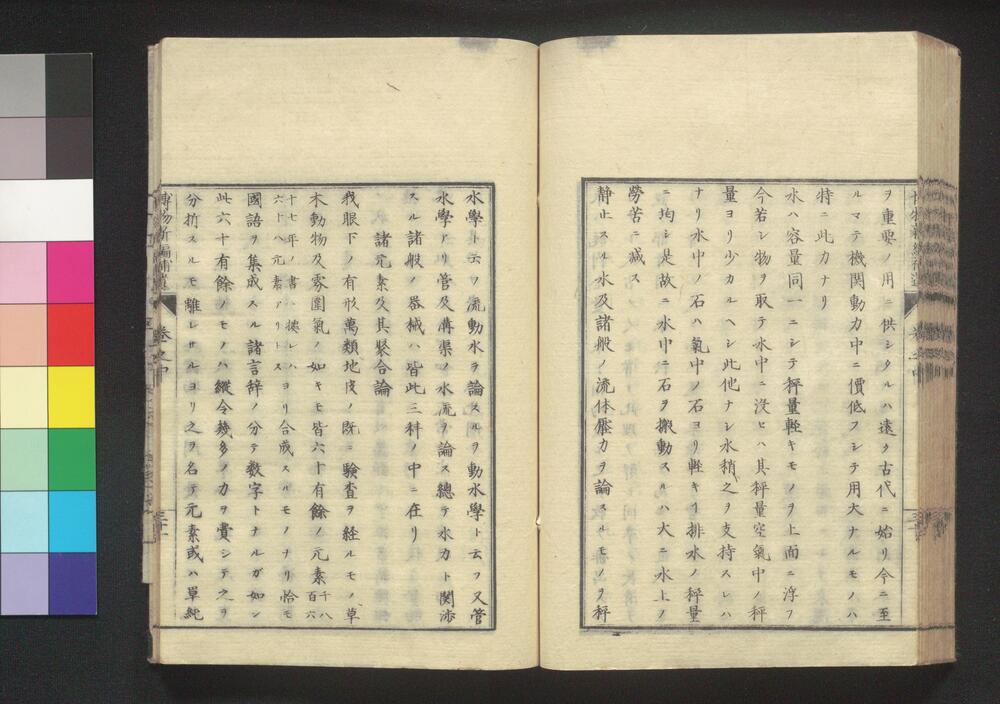 ヲ重要ノ用ニ供シタルハ遠ク古代ニ始リ今ニ至
ルマテ機関動力中ニ價低フシテ用大ナルモノハ
特ニ此力ナリ
水ハ容量同一ニシテ秤量軽キモノヲ上面ニ浮フ
今若シ物ヲ取テ水中ニ没セハ其秤量空氣中ノ秤
量ヨリ少カルヘシ此他ナシ水稍之ヲ支持スレハ
ナリ水中ノ石ハ氣中ノ石ヨリ軽キヿ排水ノ秤量
ニ均シ是故ニ水中ニ石ヲ搬動スルハ大ニ水上ノ
勞苦ニ減ス
静止スル水及諸般ノ流体壓力ヲ論スルモノヲ秤
水學ト云ヲ流動水ヲ論スルヲ動水學ト云フ又管
水學アリ管及溝渠ノ水流ヲ論ス總テ水力ト関渉
スル諸般ノ器械ハ皆此三科ノ中ニ在リ
諸元素及其聚合論
我眼下ノ有形萬類地皮ノ既ニ験査ヲ経ルモノ草
木動物及雰圍氣ノ如キモ皆六十有餘ノ元素千八百六
十七年ノ書ニ據レハ六十八元素アリトスヨリ合成スルモノナリ恰モ
國語ヲ集成スル諸言辞ノ分テ数字トナルガ如シ
此六十有餘ノモノハ縦令幾多ノ力ヲ費シテ之ヲ
分析スルモ離レサルヨリ之ヲ名テ元素或ハ單純
博物新編補遺
巻之中